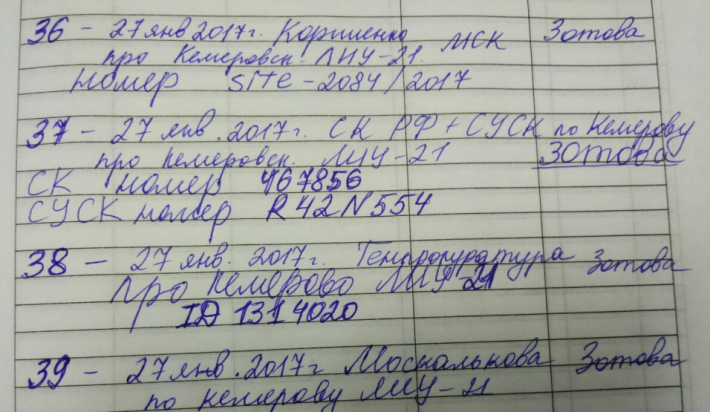 36 - 27 янв 2017г. Коршенко МСК Зотова
про Кемеровск. ЛИУ-21.
номер site-2084/2017
37 - 27 янв. 2017г. СК РФ + СУСК по Кемерову
про кемеровск. ЛИУ-21 Зотова
СК номер 467856
СУСК номер R42N554
38 - 27 янв. 2017г. Генпрокуратура Зотова
про Кемерово ЛИУ 21
ID 1314020
39 - 27 янв. 2017г Москалькова Зотова
по кемерову ЛИУ-21